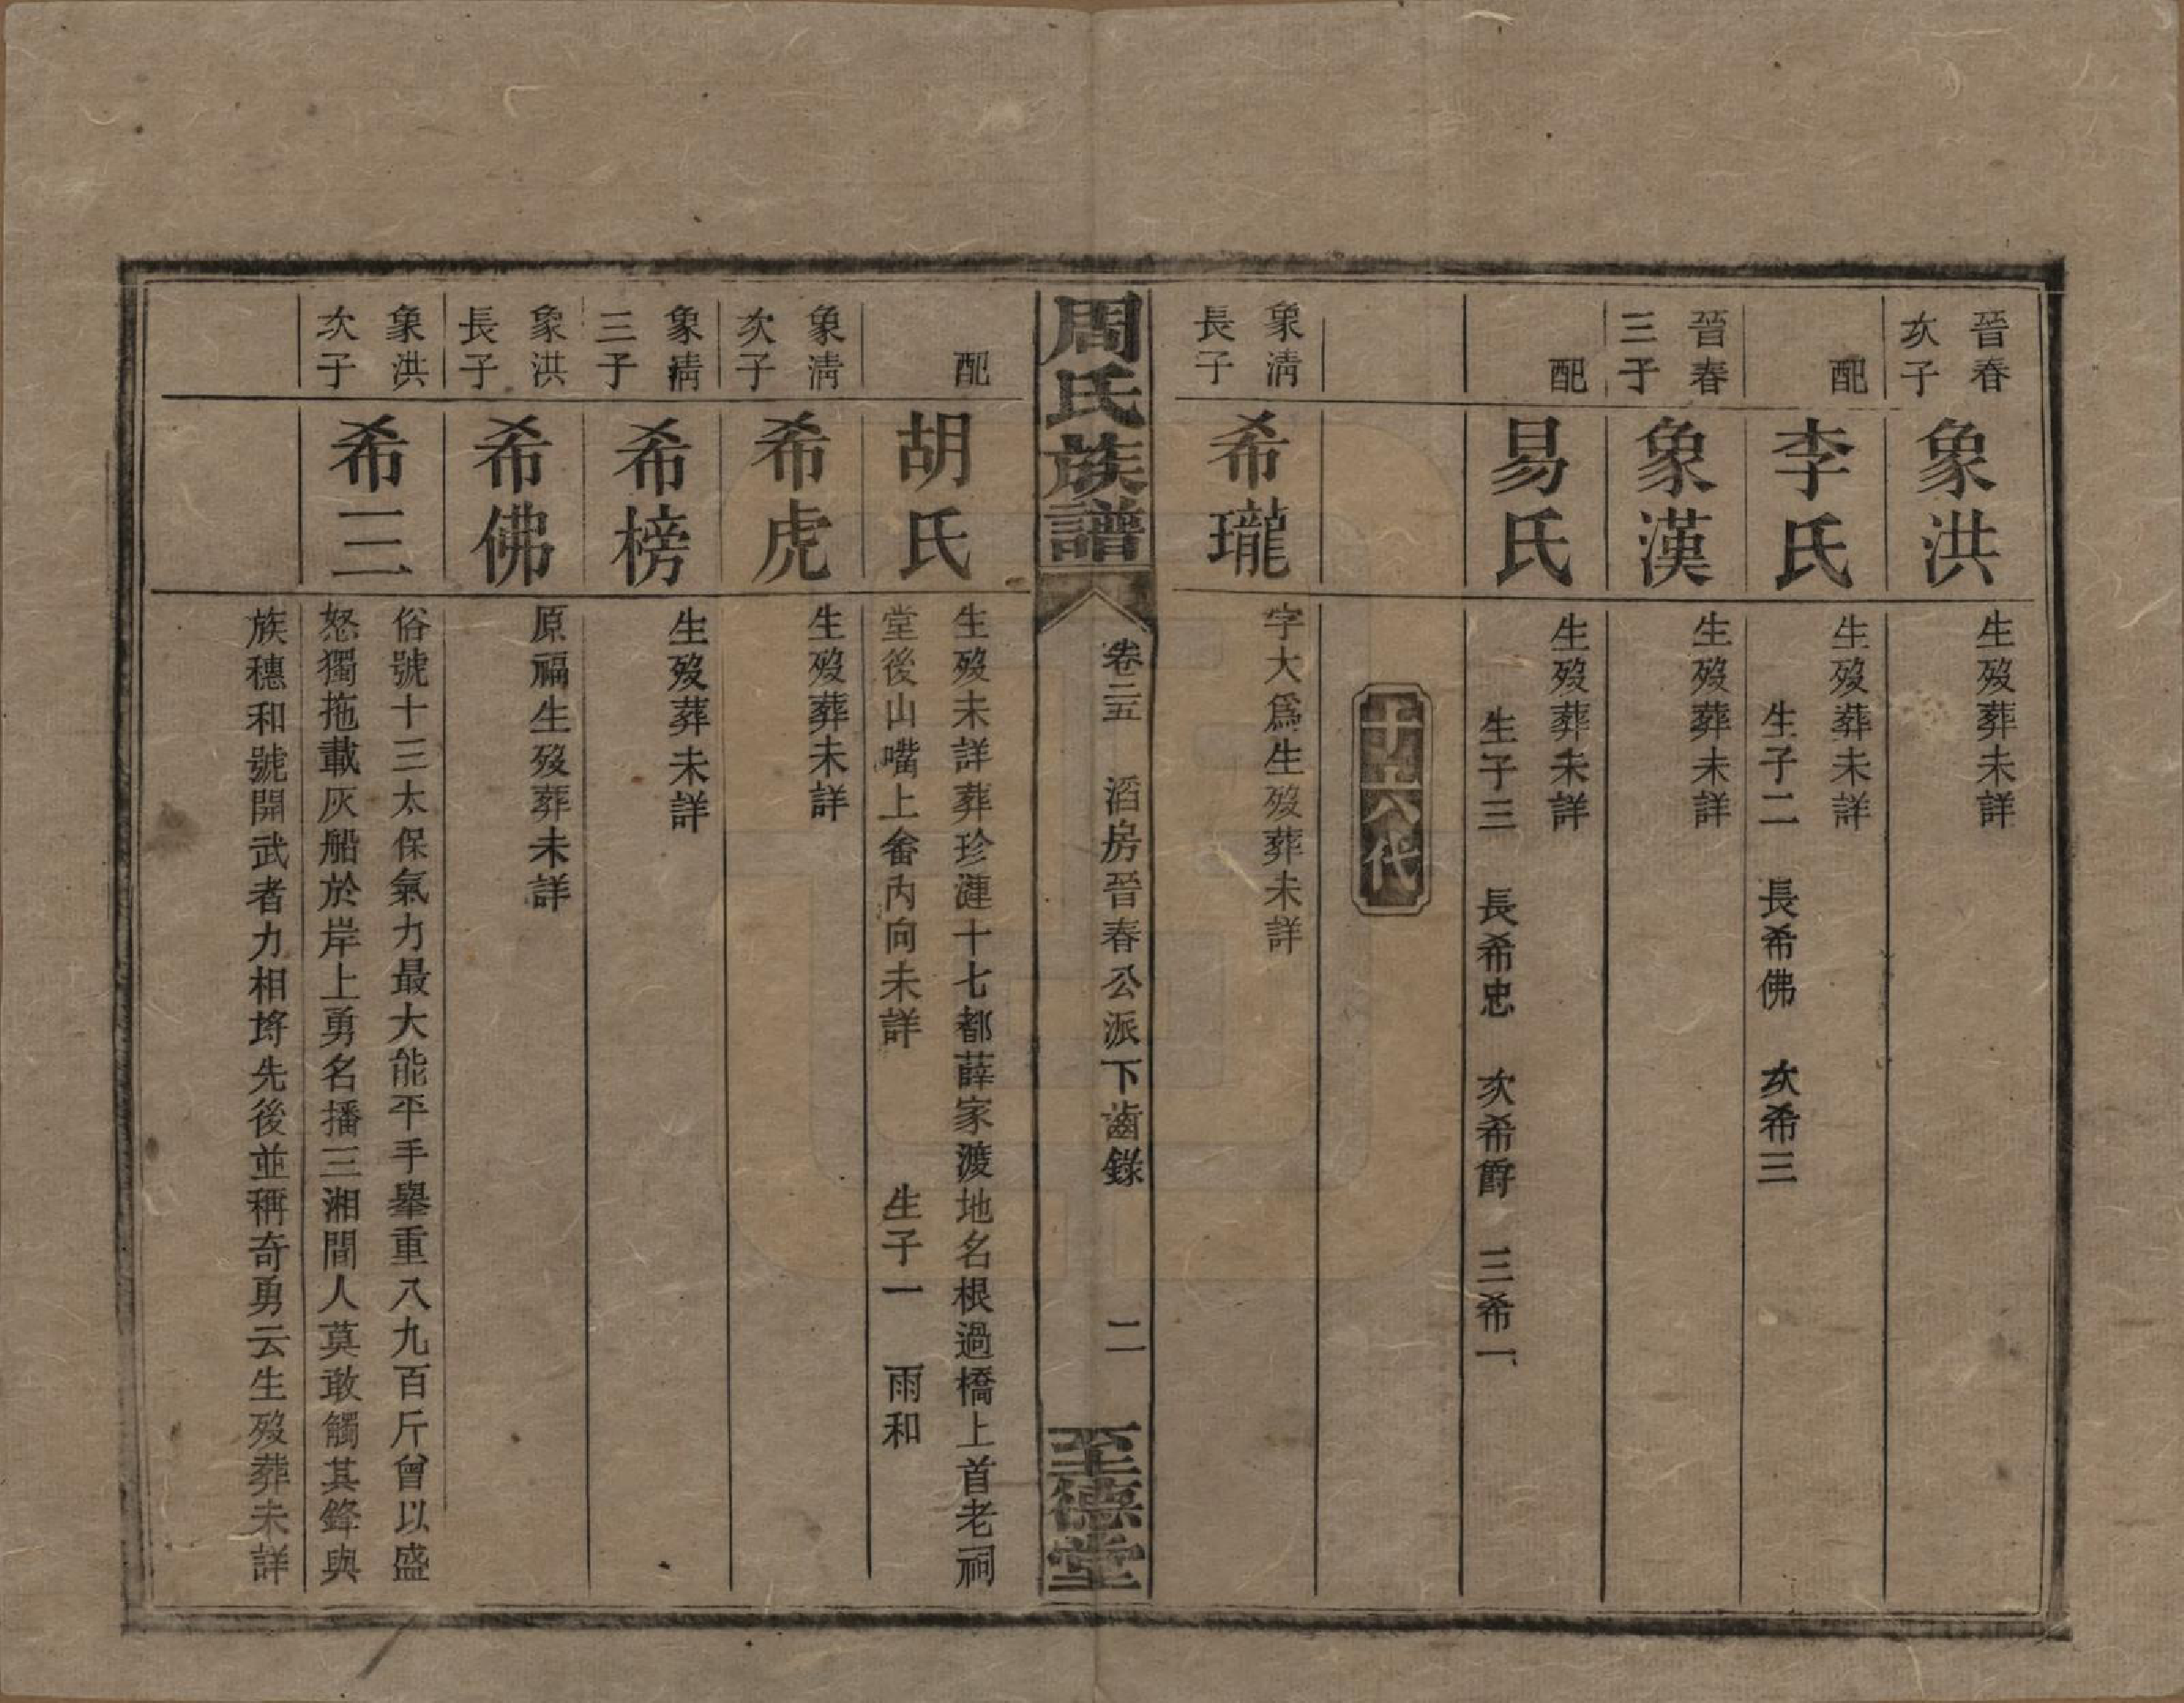 晉春
次子
象洪
生歿葬未詳
配
李氏
生歿葬未詳
生子二　長希佛　次希三
晉春
三子
象漢
生歿葬未詳
配
易氏
生歿葬未詳
生子三　長希忠　次希爵　三希一
代
象清
長子
希瓏
字大為生歿葬未詳
周氏族譜
卷二五　滔房晉春公派下齒錄　二
至德堂
配
胡氏
生歿未詳葬珍漣十七都薛家渡地名根過橋上首老祠
堂後山嘴上畲內向未詳　生子一　雨和
象清
次子
希虎
生歿葬未詳
象清
三子
希榜
生歿葬未詳
象洪
長子
希佛
原福生歿葬未詳
象洪
次子
希三
俗號十三太保氣力最大能平手舉重八九百斤曾以盛
怒獨拖載灰船於岸上勇名播三湘間人莫敢觸其鋒與
族穗和號開武者力相埒先後並稱奇勇云生歿葬未詳